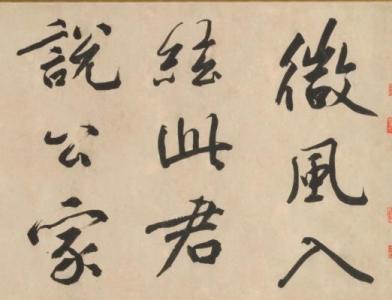 微風入
絃此君
說公家